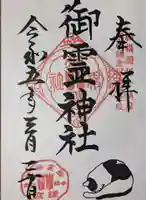 奉拝
御霊神社
令和五年三月